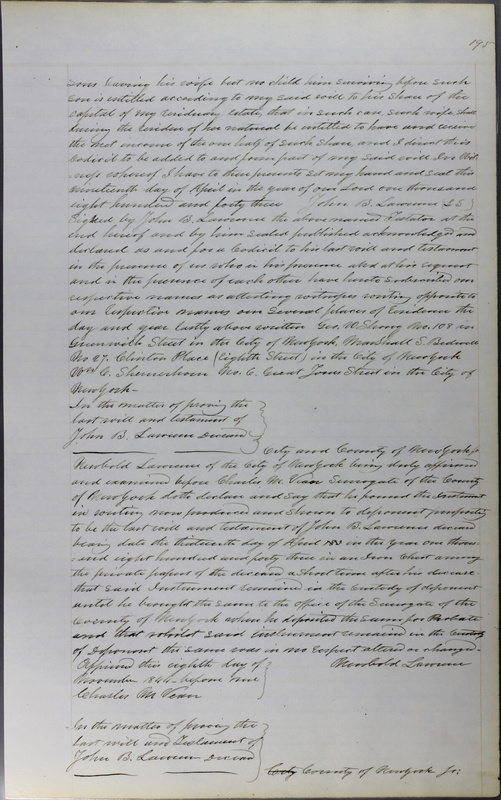 195
sons leaving his wife but no child him surviving before such
son is entitled according to my said will to his share of the
capital of my residuary estate, that in such case such wife shall
during the residue of her natural be entitled to have and receive
the net income of the one half of such share, and I direct this
codicil to be added to and form part of my said will. In Wit-
ness whereof I have to these presents set my hand and seal this
nineteenth day of April in the year of our Lord one thousand
eight hundred and forty three John B. Lawrence (LS)
Signed by John B. Lawrence the above named Testator at the
end hereof and by him sealed published acknowledged and
declared as and for a Codicil to his last will and testament
in the presence of us who in his presence and at his request
and in the presence of each other have hereto subscribed our
respective names as attesting witnesses writing opposite to
our respective names our several places of residence the
day and year lastly above written Geo. W. Strong No. 108 in
Greenwich Street in the City of New York, Marshall S. Bidwell
No 27. Clinton Place (Eighth Street) in the City of New York
Wm C. Schermerhorn No. 6. Great Jones Street in the City of
New York -
In the matter of proving the
last will and testament of
John B. Lawrence Deceased
City and County of New York ss
Newbold Lawrence of the City of New York being duly affirmed
and examined before Charles McVean Surrogate of the County
of New York doth declare and say that he found the Instrument
in writing now produced and shown to deponent purporting
to be the last will and testament of John B. Lawrence deceased
bearing date the thirteenth day of April in the year one thous-
and eight hundred and forty three in an Iron Chest among
the private papers of the deceased a short time after his decease
that said Instrument remained in the custody of deponent
until he brought the same to the office of the Surrogate of the
County of New York when he deposited the same for Probate
and that whilst said instrument remained in the Custody
of Deponent the same was in no respect altered or changed -
Affirmed this eighth day of Newbold Lawrence
November 1844 - before me
Charles McVean
In the matter of proving the
Last will and Testament of
John B. Lawrence Deceased
City County of New York Ss: